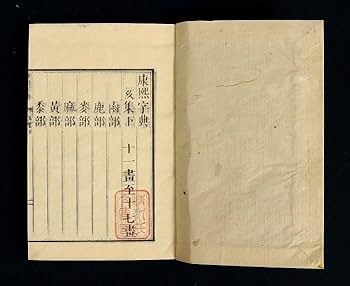 康熙字典
亥集下 十一畫至十七畫
鹵部
鹿部
麥部
麻部
黃部
黍部